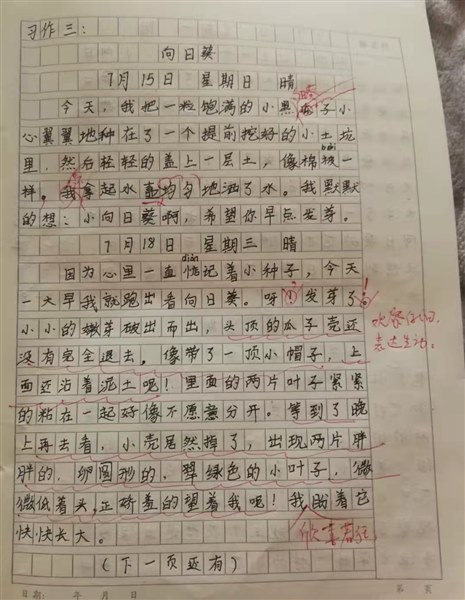 习作三：
向日葵
7月15日 星期日 晴
今天，我把一粒饱满的小黑瓜子小
心翼翼地种在了一个提前挖好的小土坑
里，然后轻轻的盖上一层土，像棉被一
bèi
样。我拿起水壶均匀地洒了水。我默默
的想：小向日葵啊，希望你早点发芽。
7月18日 星期三 晴
diàn
因为心里一直惦记着小种子，今天
一大早我就跑出看向日葵。呀！发芽了！
小小的嫩芽破土而出，头顶的瓜子壳还
没有完全退去。像带了一顶小帽子，上
观察仔细，
表达生动。
面还沾着泥土呢！里面的两片叶子紧紧
的粘在一起好像不愿意分开。等到了晚
上再去看，小壳居然掉了，出现两片胖
胖的，卵圆形的，翠绿色的小叶子，微
微低着头，正娇羞的望着我呢！我盼着它
快快长大。
欣喜若狂
（下一页还有）
日期： 年 月 日
第 页